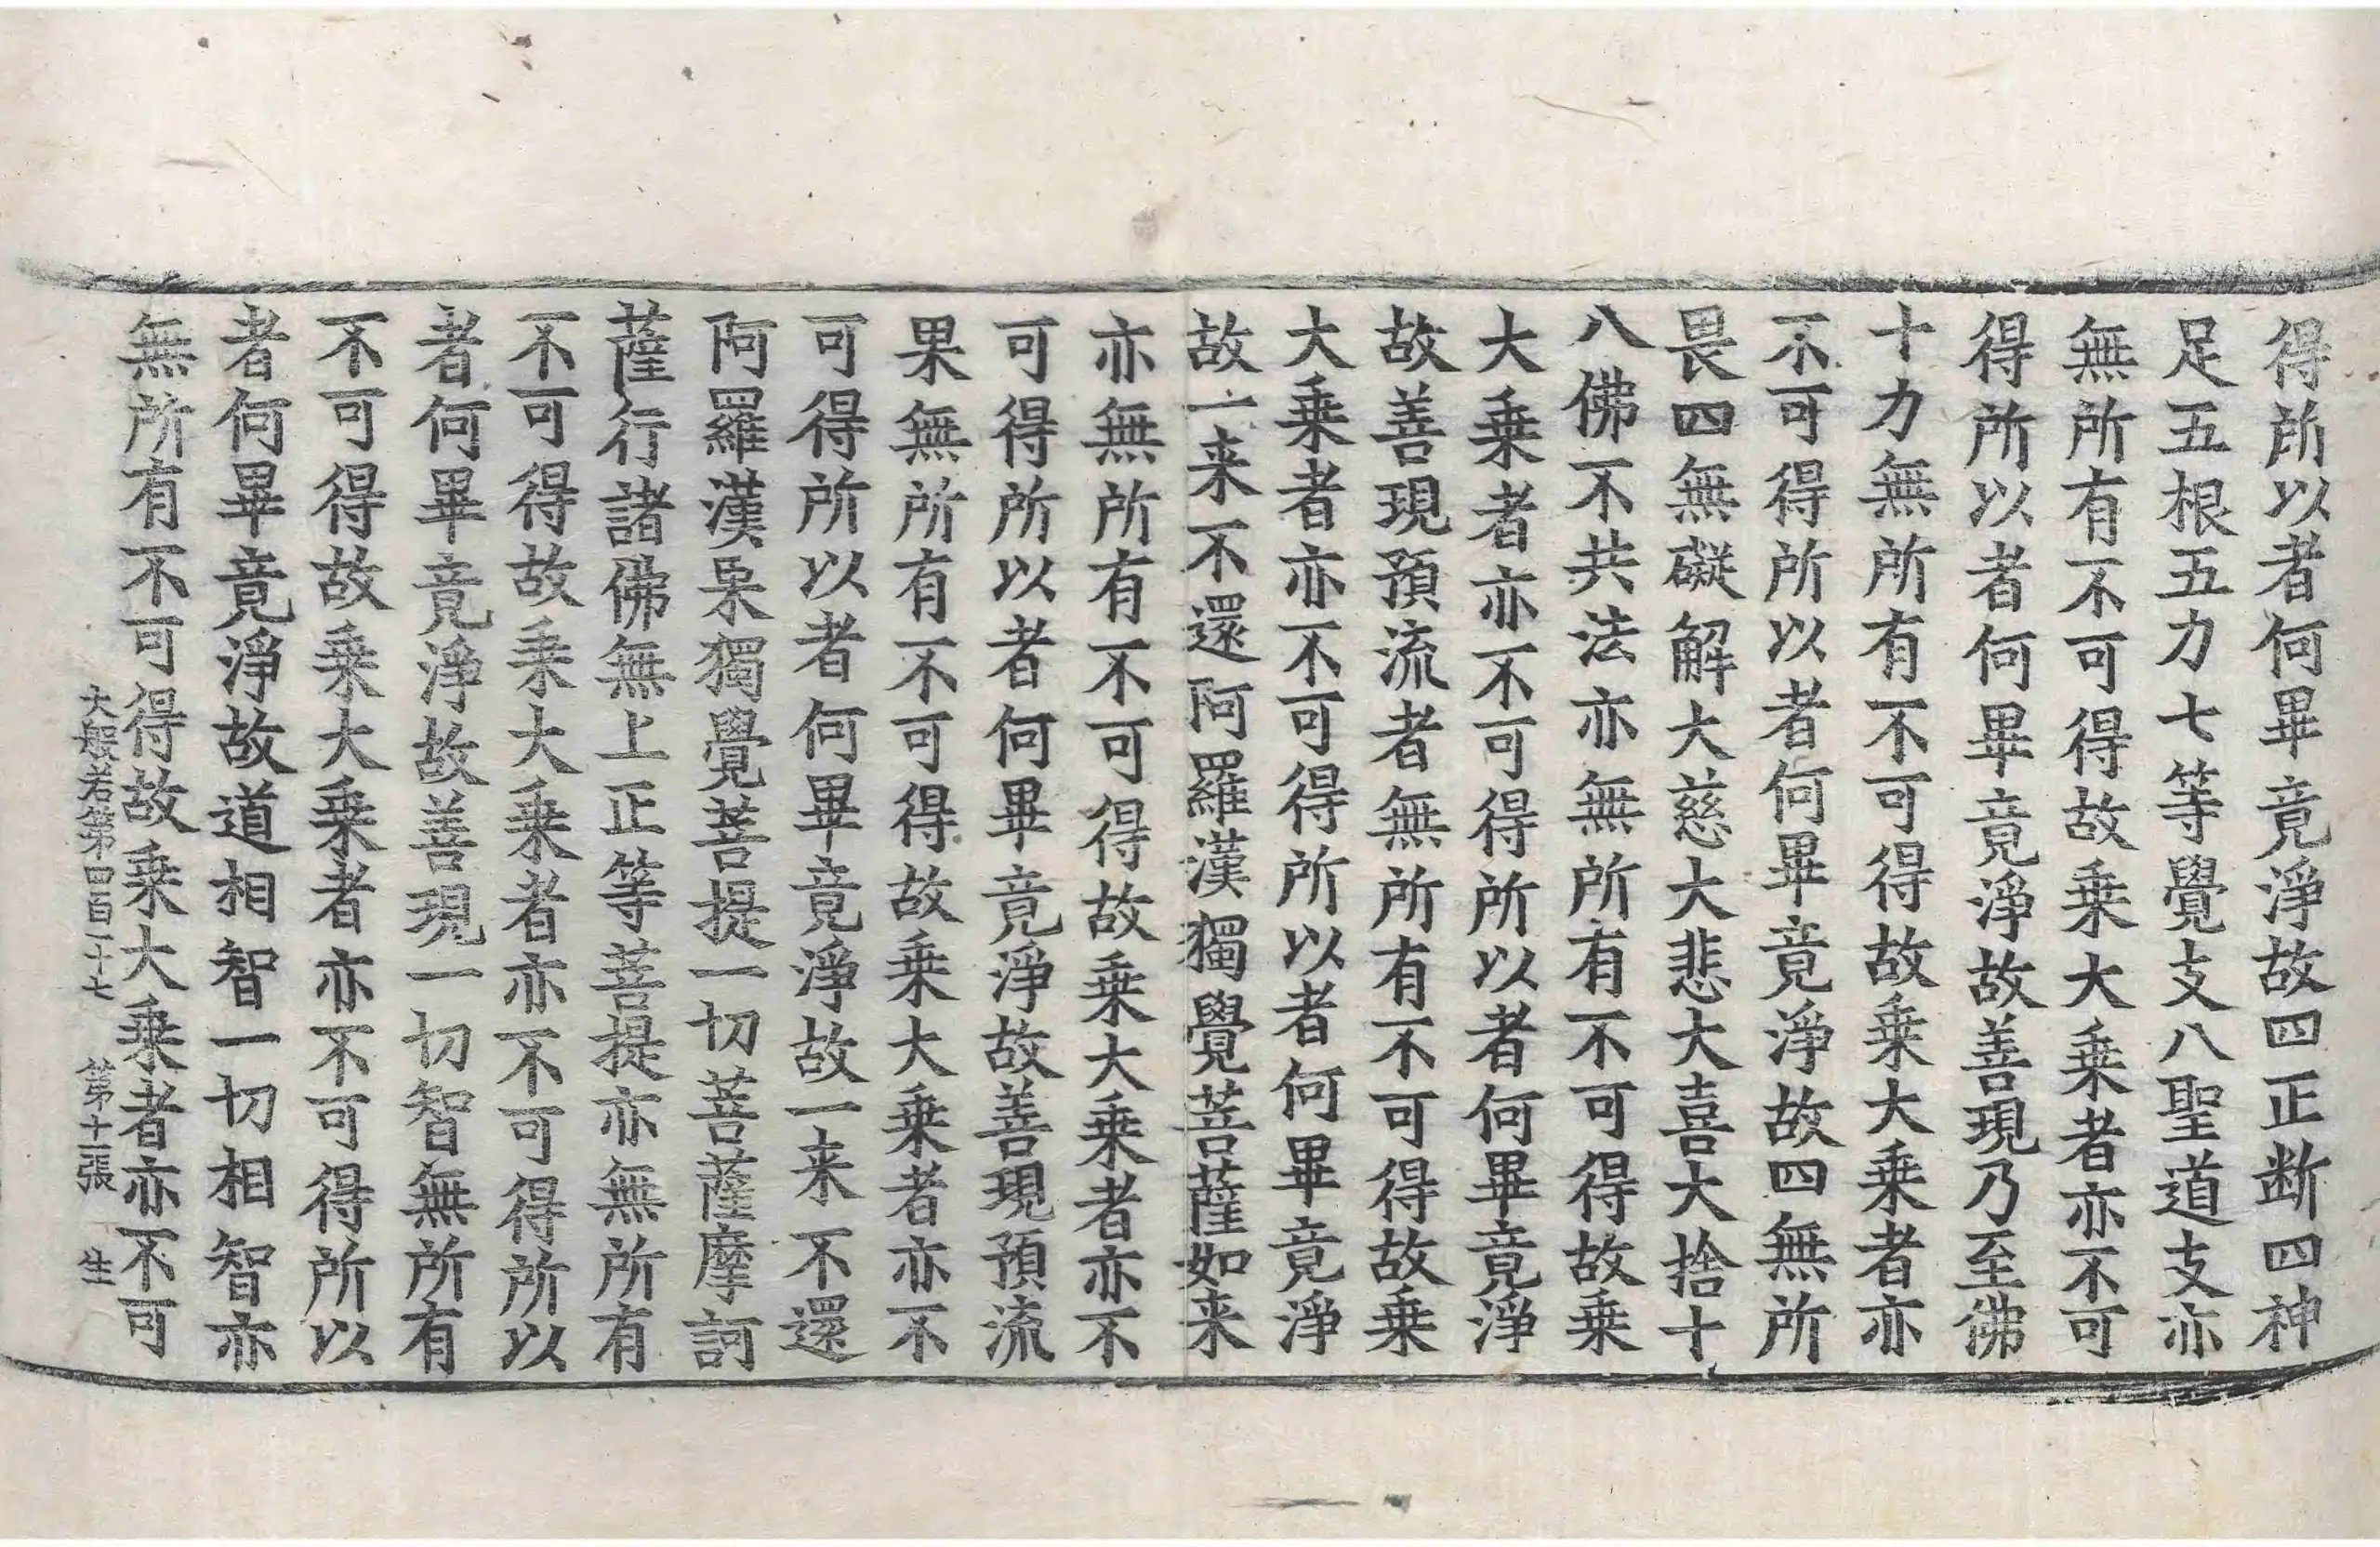 得所以者何畢竟淨故四正断四神
足五根五力七等覺支八聖道支亦
無所有不可得故乗大乗者亦不可
得所以者何畢竟淨故善現乃至佛
十力無所有不可得故乗大乗者亦
不可得所以者何畢竟淨故四無所
畏四無礙解大慈大悲大喜大捨十
八佛不共法亦無所有不可得故乗
大乗者亦不可得所以者何畢竟淨
故善現預流者無所有不可得故乗
大乗者亦不可得所以者何畢竟淨
故一来不還阿羅漢獨覺菩薩如来
亦無所有不可得故乗大乗者亦不
可得所以者何畢竟淨故善現預流
果無所有不可得故乗大乗者亦不
可得所以者何畢竟淨故一来不還
阿羅漢果獨覺菩提一切菩薩摩訶
薩行諸佛無上正等菩提亦無所有
不可得故乗大乗者亦不可得所以
者何畢竟淨故善現一切智無所有
不可得故乗大乗者亦不可得所以
者何畢竟淨故道相智一切相智亦
無所有不可得故乗大乗者亦不可
大般若第四百一十七 第十二張 生